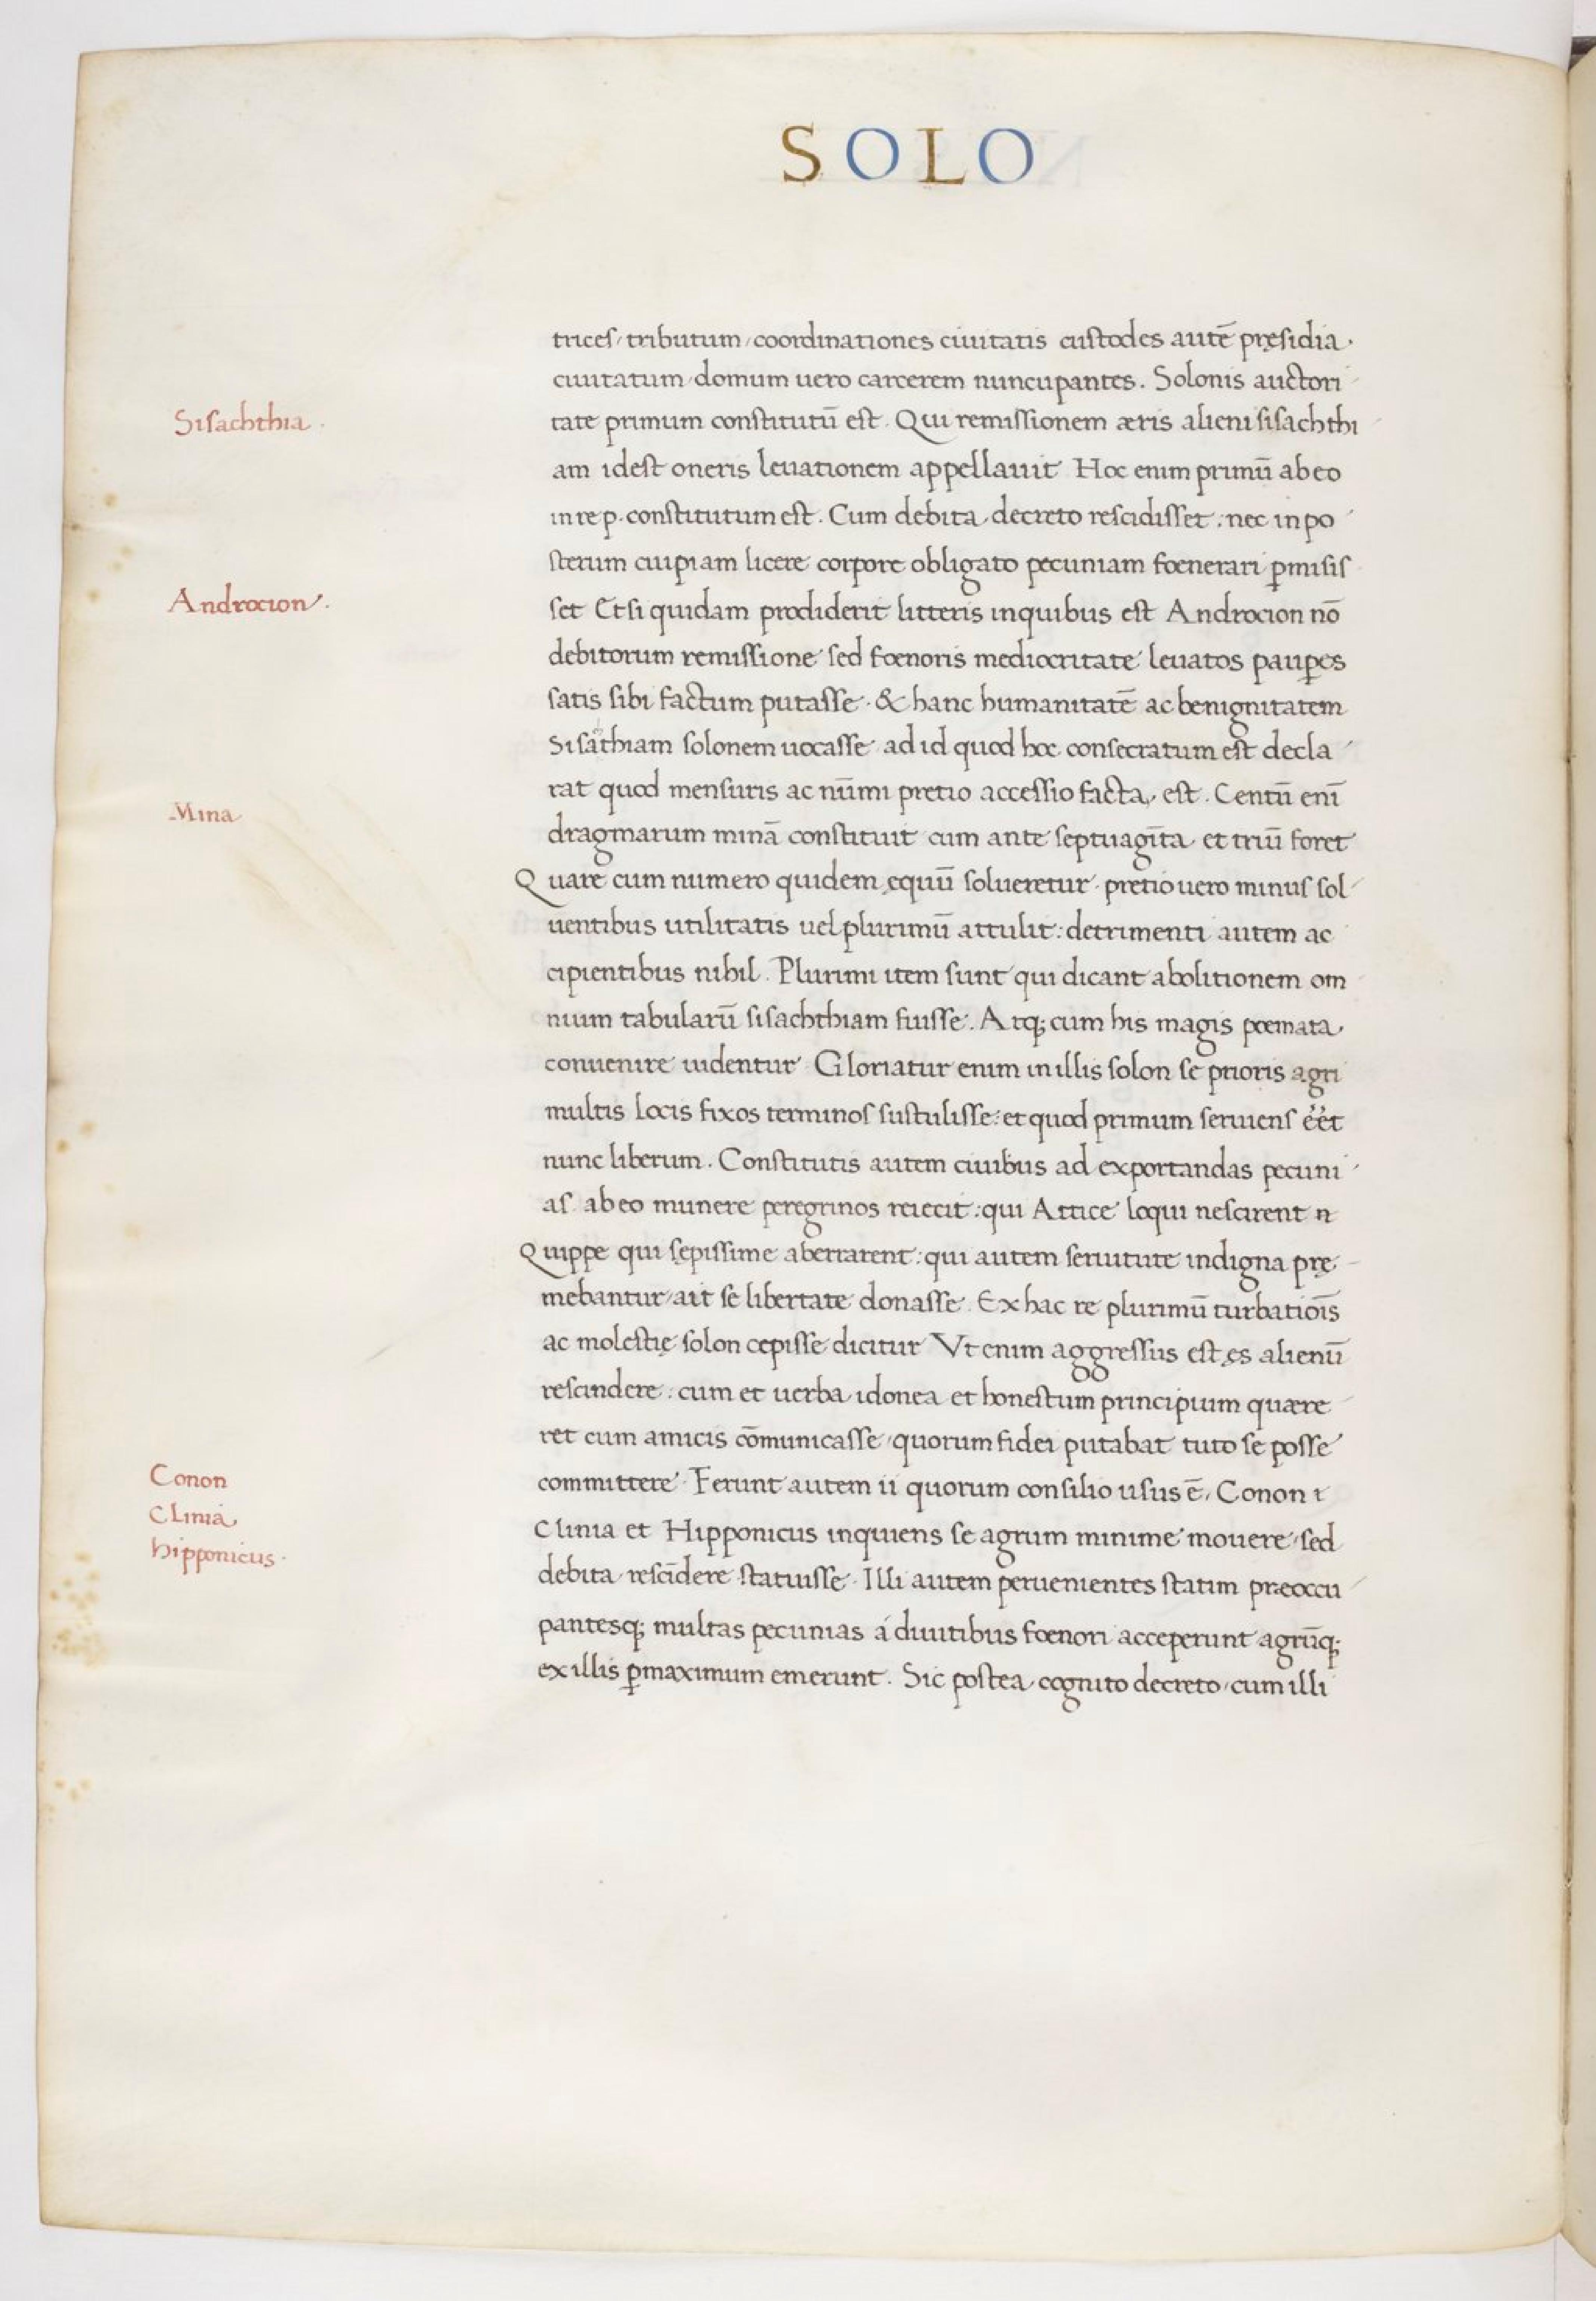 SOLO
trices, tributum, coordinationes ciuitatis custodes autē pręsidia.
ciuitatum, domum uero carcerem nuncupantes. Solonis auctori
Sisachthia.
tate primum constitutū est. Qui remissionem æris alieni sisachthi
am idest oneris leuationem appellauit Hoc enim primū ab eo
in re p. constitutum est. Cum debita decreto rescidisset: nec in po
sterum cuipiam licere corpore obligato pecuniam foenerari ꝑmisis
Androcion.
set Etsi quidam prodiderit litteris in quibus est Androcion nō
debitorum remissione sed foenoris mediocritate leuatos pauꝑes
satis sibi factum putasse. & hanc humanitatē ac benignitatem
Sisathiam solonem uocasse ad id quod hoc consecratum est decla
rat quod mensuris ac nūmi pretio accessio facta est. Centū eni̅
Mina
dragmarum minā constituit cum ante septuagīta et triū foret
Quare cum numero quidem ęquū solueretur. pretio uero minus sol
uentibus utilitatis uel plurimū attulit: detrimenti autem ac
cipientibus nihil. Plurimi item sunt qui dicant abolitionem om
nium tabularū sisachthiam fuisse. Atq; cum his magis poemata
conuenire uidentur Gloriatur enim in illis solon se prioris agri
multis locis fixos terminos sustulisse: et quod primum seruiens ēēt
nunc liberum. Constitutis autem ciuibus ad exportandas pecuni
as ab eo munere peregrinos reiecit: qui Attice loqui nescirent
Quippe qui sępissime aberrarent: qui autem seruitute indigna prę
mebantur, ait se libertate donasse. Ex hac re plurimū turbatiōis
ac molestię solon cepisse dicitur Vt enim aggressus est ęs alienū
rescindere: cum et uerba idonea et honestum principium quære
ret cum amicis cōmunicasse, quorum fidei putabat tuto se posse
Conon
committere. Ferunt autem ii quorum consilio usus ē, Conon
Clinia
Clinia et Hipponicus inquiens se agrum minime mouere, sed
hipponicus.
debita rescīdere statuisse. Illi autem peruenientes statim præoccu
pantesq; multas pecunias á diuitibus foenori acceperunt agrūq;
ex illis ꝑmaximum emerunt. Sic postea cognito decreto, cum illi